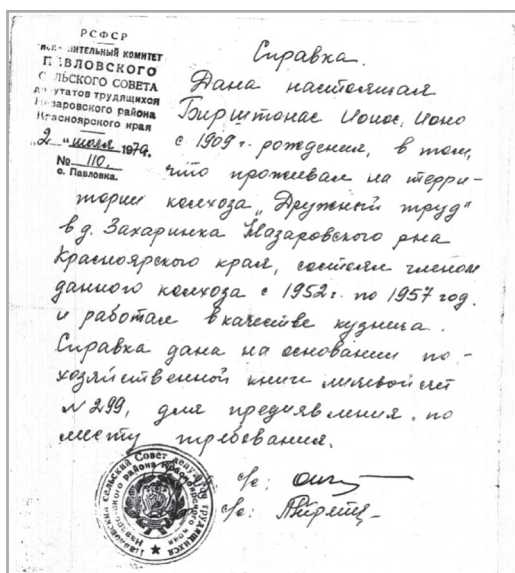 РСФСР
ИСПОЛНИТЕЛЬНЫЙ КОМИТЕТ
ПАВЛОВСКОГО
СЕЛЬСКОГО СОВЕТА
депутатов трудящихся
Назаровского района
Красноярского края
2 " июля 1979г.
№ 110.
с. Павловка.
Справка.
Дана настоящая
Бирштонас Ионас, Ионо
с 1909 г. рождения, в том,
что проживал на терри-
тории колхоза „Дружный труд"
в д. Захаринка Назаровского р-на
Красноярского края, состоял членом
данного колхоза с 1952 г. по 1957 год.
и работал в качестве кузнеца.
Справка дана на основании по-
хозяйственной книги лицевой счет
№ 299, для предиявления по
месту требования.
с/с:
с/с:
Павловский сельский Совет депутатов трудящихся
Назаровского района Красноярского края